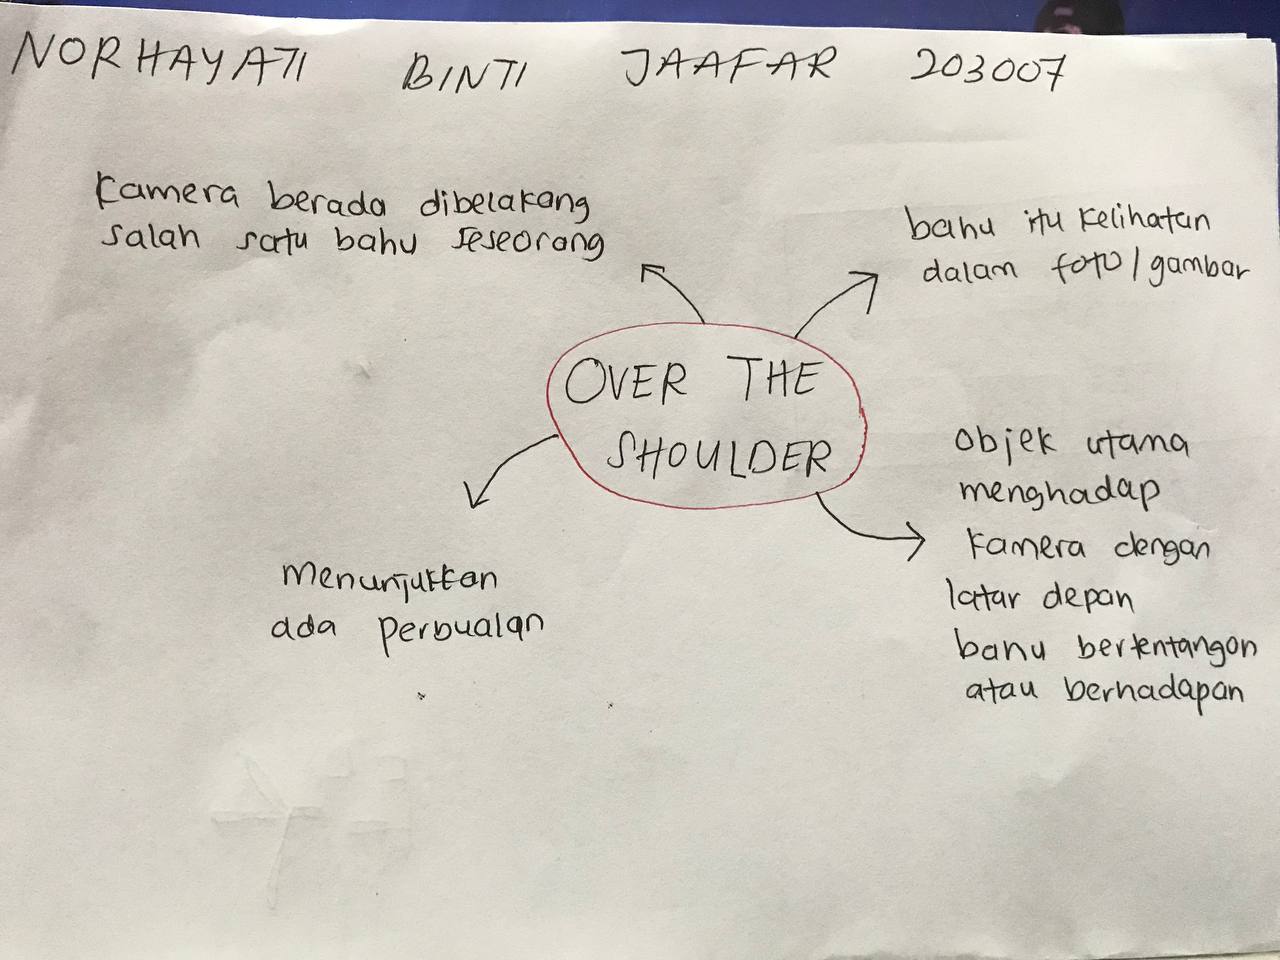 NORHAYATI BINTI JAAFAR 203007
kamera berada dibelakang
salah satu bahu seseorang
bahu itu kelihatan
dalam foto/gambar
OVER THE
SHOULDER
objek utama
menghadap
kamera dengan
latar depan
bahu bertentangan
atau berhadapan
menunjukkan
ada perbualan